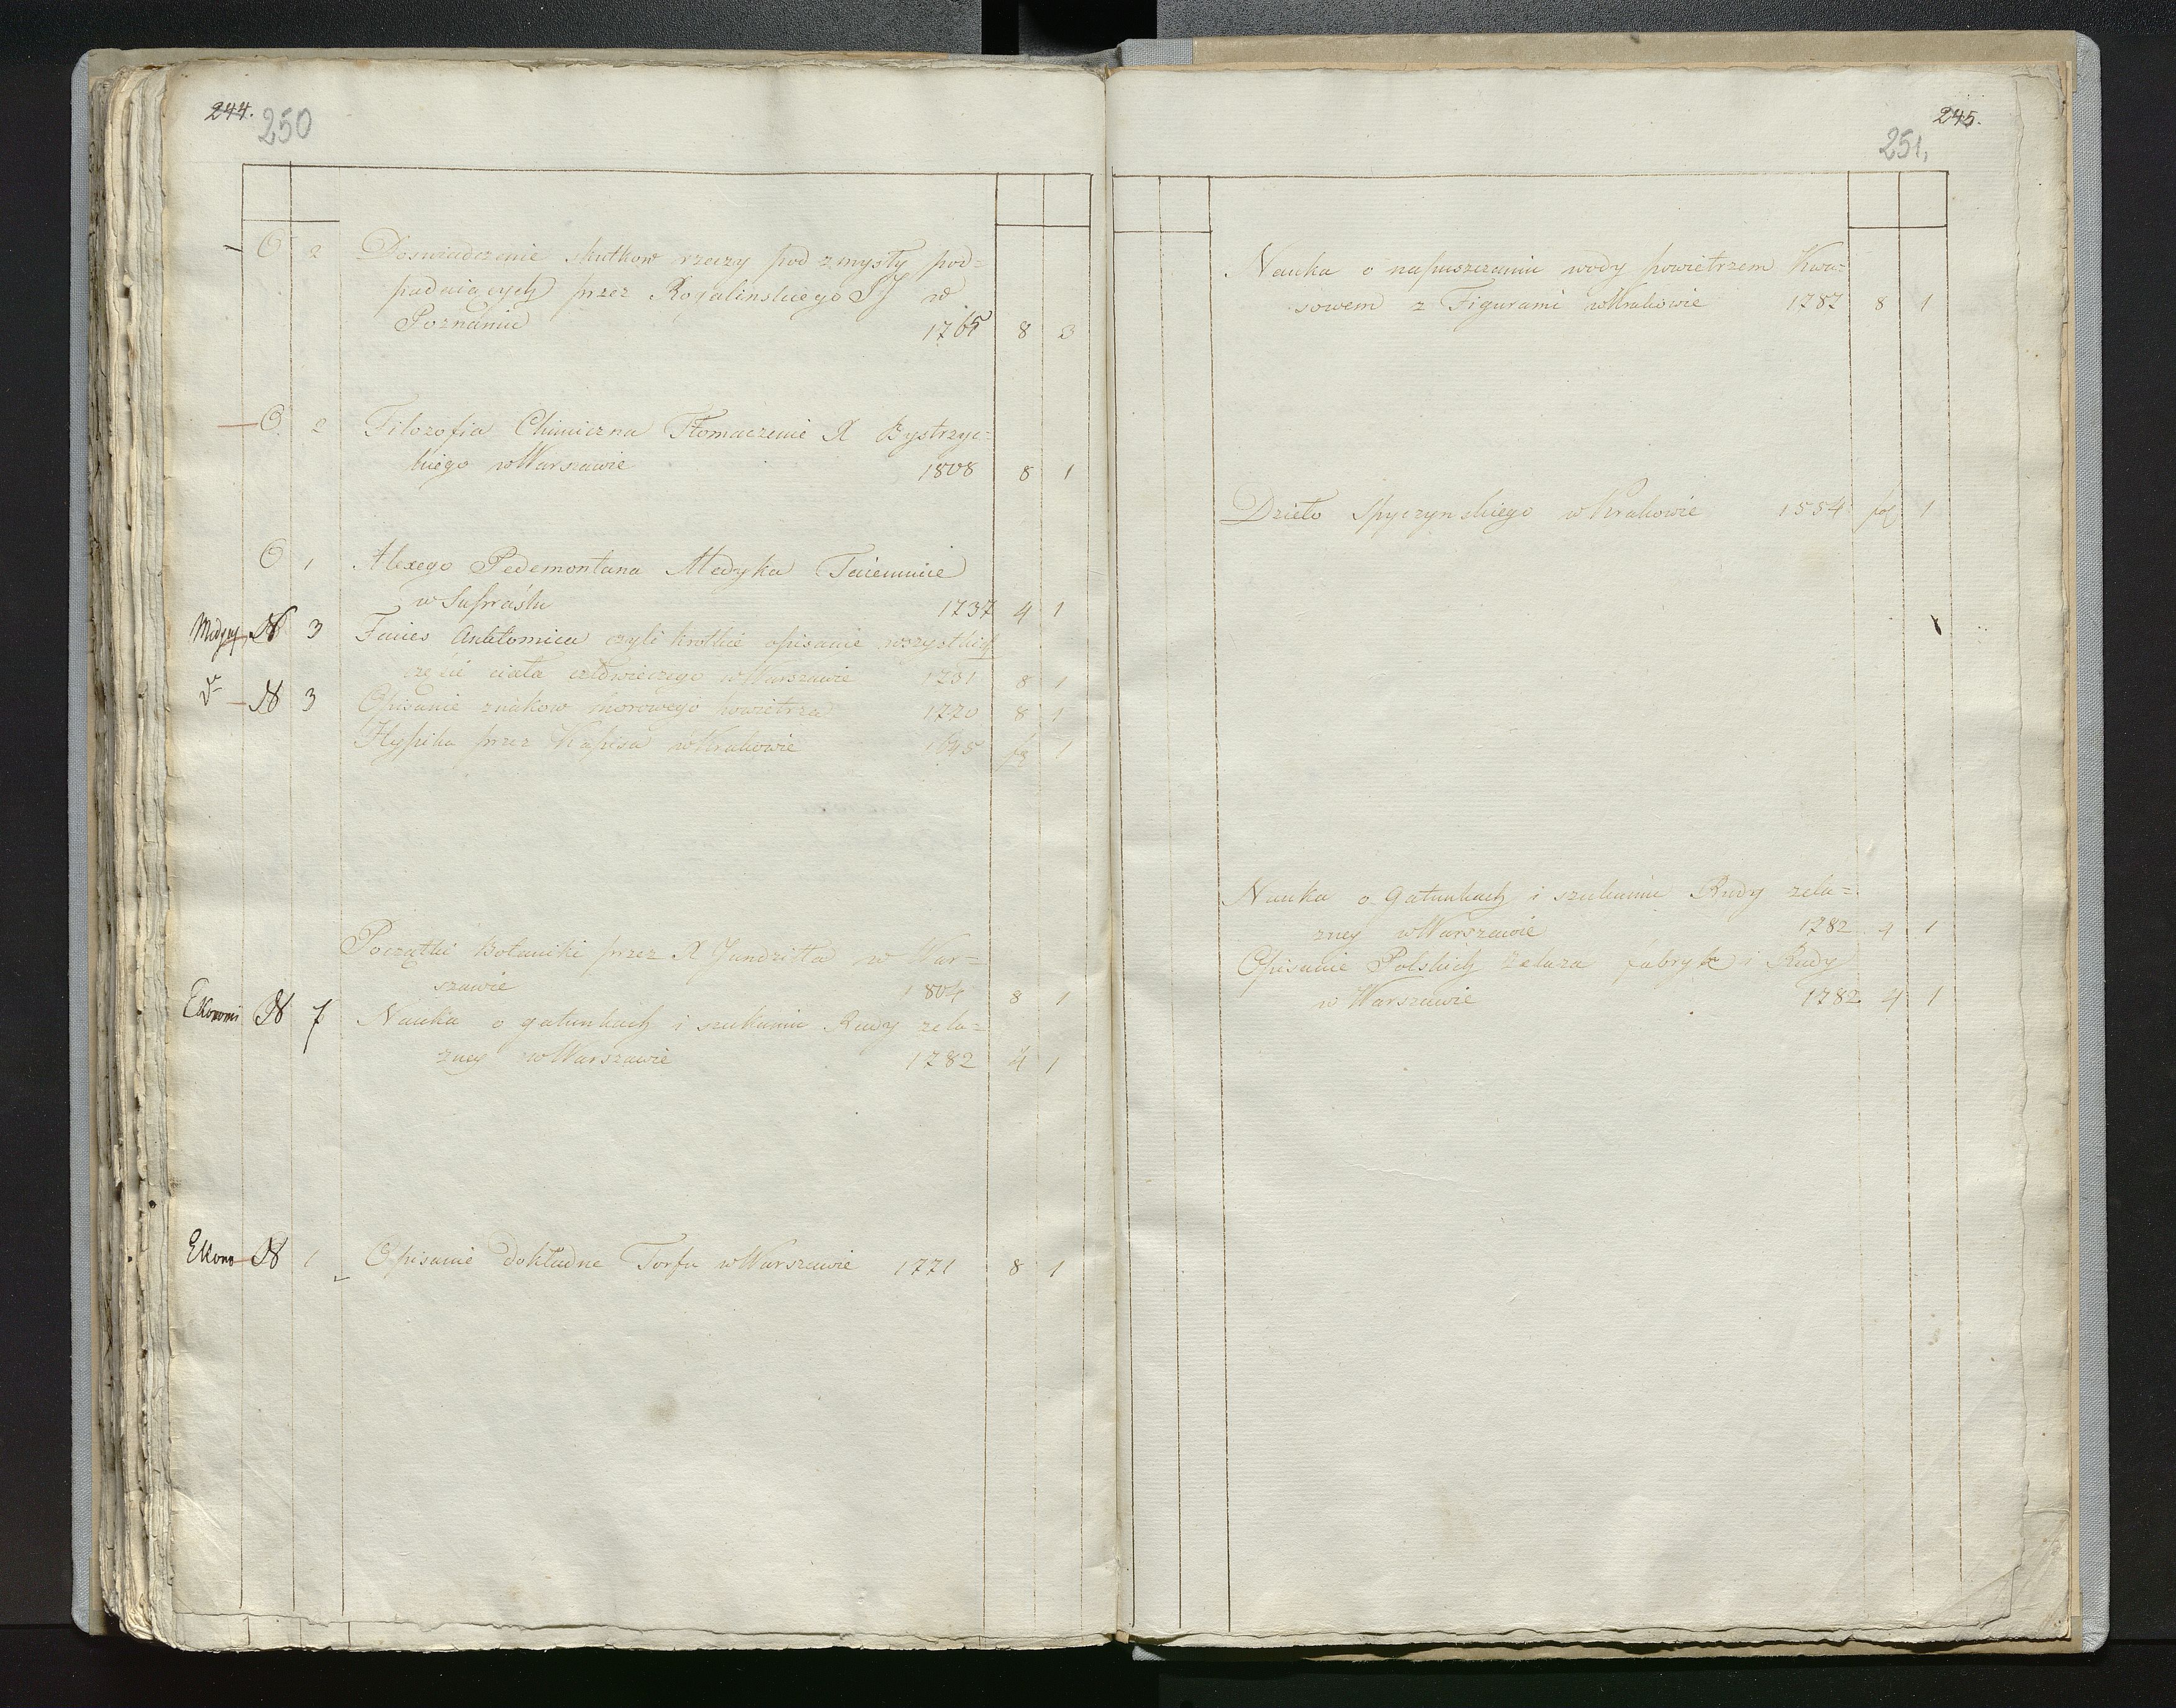 244.
250
O 2 Doswiadczenie skutkow rzeczy pod zmysły pod=
padaiących przez Rogalinskiego SJ w
Poznaniu 1765 8 3
O 2 Filozofia Chimiczna Tłomaczenie X Bystrzyc=
kiego w Warszawie 1808 8 1
O 1 Alexego Pedemontana Medyka Taiemnice
w Supraslu 1737 4 1
N 3 Facies Anatomica czyli krotkie opisanie wszystkich
części ciała człowieczego w Warszawie 1731 8 1
N 3 Opisanie znakow morowego powietrza 1770 8 1
Hypika przez w Krakowie 1645 1
Początki Botaniki przez X Jundziłła w War=
szawie 1804 8 1
Ekonomi N 7 Nauka o gatunkach i szukaniu Rudy zela=
zney w Warszawie 1782 4 1
Ekono N 1 Opisanie dokładne Torfu w Warszawie 1771 8 1
245.
251.
Nauka o napuszczaniu wody powietrzem Kwa=
sowem z Figurami w Krakowie 1787 8 1
Dzieło Spyczynskiego w Krakowie 1554 fol 1
Nauka o gatunkach i szukaniu Rudy zela=
zney w Warszawie 1782 4 1
Opisanie Polskich Zelaza fabryk i Rudy
w Warszawie 1782 4 1